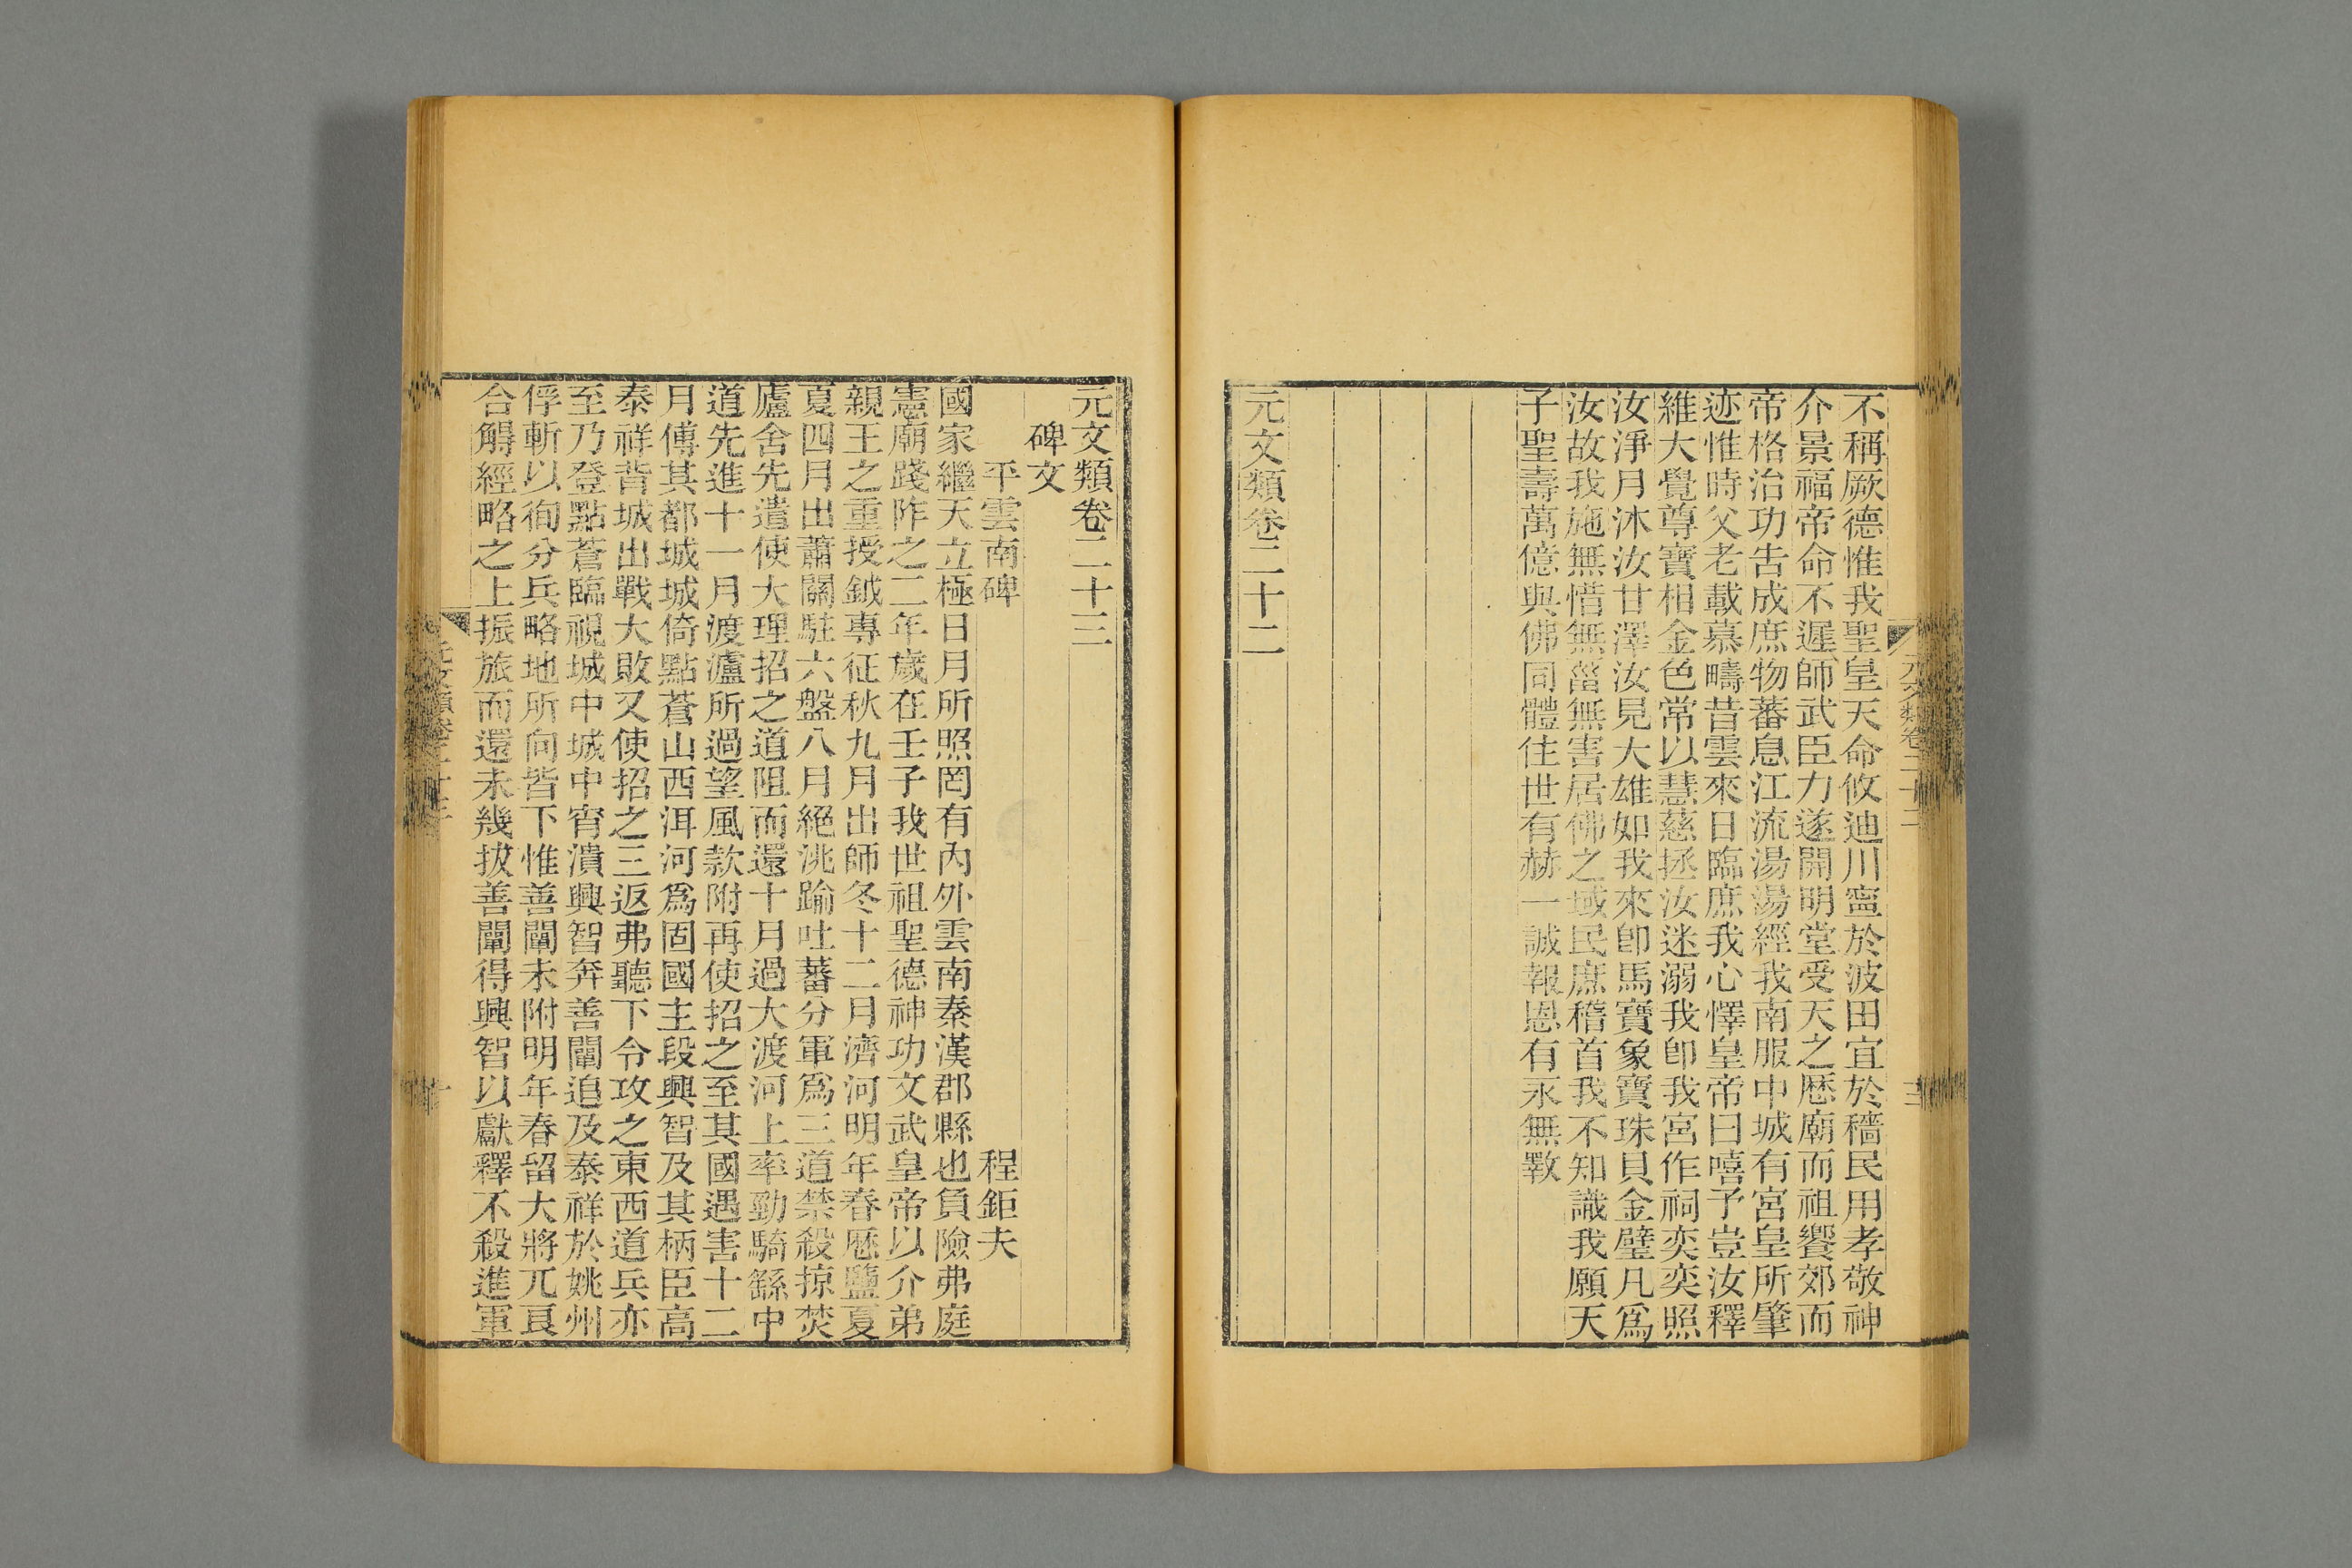 不稱厥德惟我聖皇天命攸迪川寧於波田宜於穡民用孝敬神
介景福帝命不遲師武臣力遂開明堂受天之歷廟而祖饗郊而
帝格治功吿成庶物蕃息江流湯湯經我南服中城有宮皇所肇
迹惟時父老載慕疇昔雲來日臨庶我心懌皇帝曰嘻予豈汝釋
維大覺尊寶相金色常以慧慈拯汝迷溺我卽我宮作祠奕奕照
汝淨月沐汝甘澤汝見大雄如我來卽馬寶象寶珠貝金璧凡爲
汝故我施無惜無菑無害居佛之域民庶稽首我不知識我願天
子聖壽萬億與佛同體住世有赫一誠報恩有永無斁
元文類卷二十二
元文類卷二十二
三
元文類卷二十三
碑文
平雲南碑 程鉅夫
國家繼天立極日月所照罔有內外雲南秦漢郡縣也負險弗庭
憲廟踐阼之二年歲在壬子我世祖聖德神功文武皇帝以介弟
親王之重授鉞專征秋九月出師冬十二月濟河明年春歷鹽夏
夏四月出蕭關駐六盤八月絕洮踰吐蕃分軍爲三道禁殺掠焚
廬舍先遣使大理招之道阻而還十月過大渡河上率勁騎繇中
道先進十一月渡瀘所過望風款附再使招之至其國遇害十二
月傅其都城城倚點蒼山西洱河爲固國主段興智及其柄臣高
泰祥背城出戰大敗又使招之三返弗聽下令攻之東西道兵亦
至乃登點蒼臨視城中城中宵潰興智奔善闡追及泰祥於姚州
俘斬以徇分兵略地所向皆下惟善闡未附明年春留大將兀良
合䚟經略之上振旅而還未幾拔善闡得興智以獻釋不殺進軍